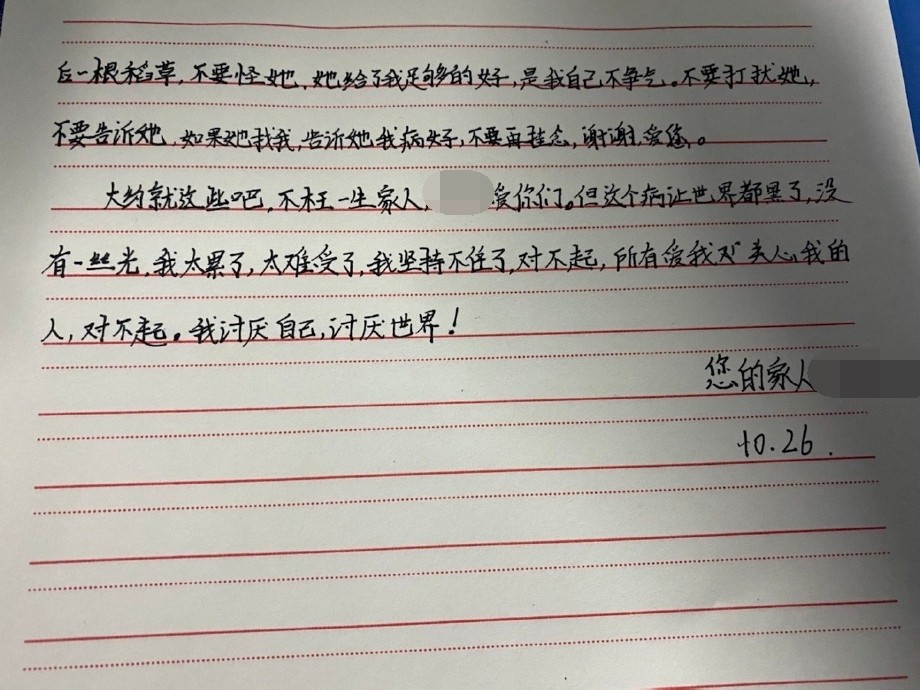 后一根稻草，不要怪她，她给了我足够的好，是我自己不争气。不要打扰她，
不要告诉她，如果她找我，告诉她我病好了，不要再挂念，谢谢，爱您。
大约就这些吧，不枉一生家人，爱你们。但这个病让世界都黑了，没
有一丝光，我太累了，太难受了，我坚持不住了，对不起，所有爱我关心我的
人，对不起。我讨厌自己，讨厌世界！
您的家人
10.26.